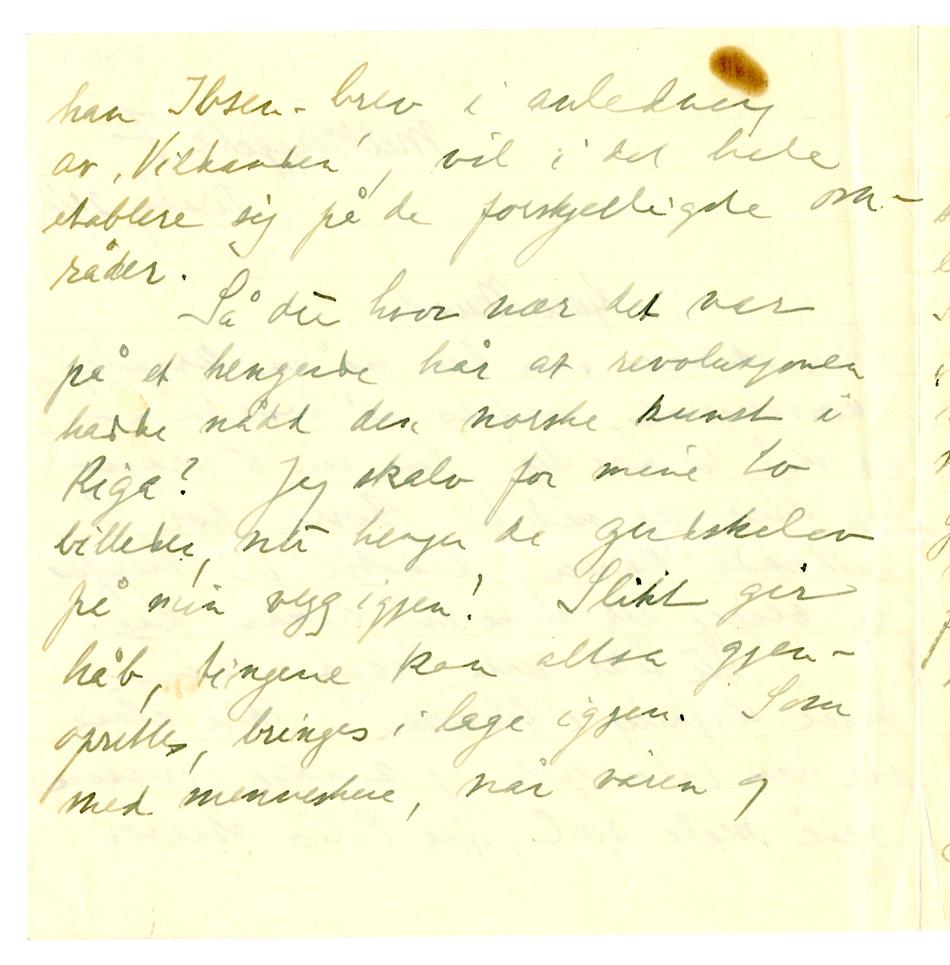 han Ibsen-brev i anledning
av 'Vildanden', vil i det hele
etablere sig på de forskjelligste om-
råder.
Så du hvor nær det var
på et hengende hår at revolusjonen
hadde nådd den norske kunst i
Riga? Jeg skalv for mine to
billeder, nu henger de gudskelov
på min vegg igjen! Slikt gir
håb, tingene kan altså gjen-
oprettes, bringes i lage igjen. Som
med menneskene, når våren og